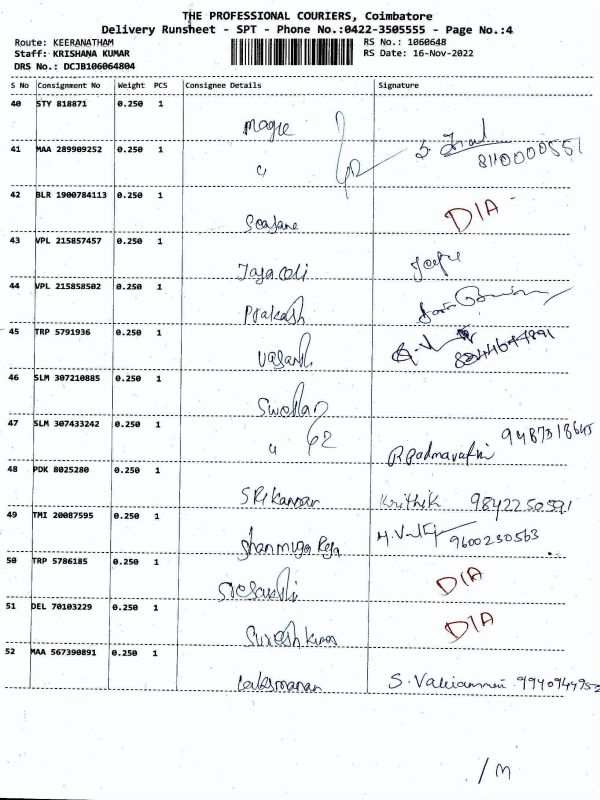 THE PROFESSIONAL COURIERS, Coimbatore
Delivery Runsheet - SPT - Phone No.:0422-3505555 - Page No.:4
Route: KEERANATHAM
RS No.: 1060648
Staff: KRISHANA KUMAR
RS Date: 16-Nov-2022
DRS No.: DCJB106064804
S No Consignment No Weight PCS Consignee Details Signature
40 STY 818871 0.250 1
Magie
41 MAA 289909252 0.250 1
62
8110000551
42 BLR 1900784113 0.250 1
DIA
43 VPL 215857457 0.250 1
44 VPL 215858502 0.250 1
Prakash
45 TRP 5791936 0.250 1
46 SLM 307210885 0.250 1
47 SLM 307433242 0.250 1
62 R Padmavathi
48 PDK 8025280 0.250 1
SRi Kannan Krithik 9842250591
49 TMI 20087595 0.250 1
Shanmuga Raja 9600230563
50 TRP 5786185 0.250 1
DIA
51 DEL 70103229 0.250 1
Suresh Kumar DIA
52 MAA 567390891 0.250 1
Laksmanan
/M